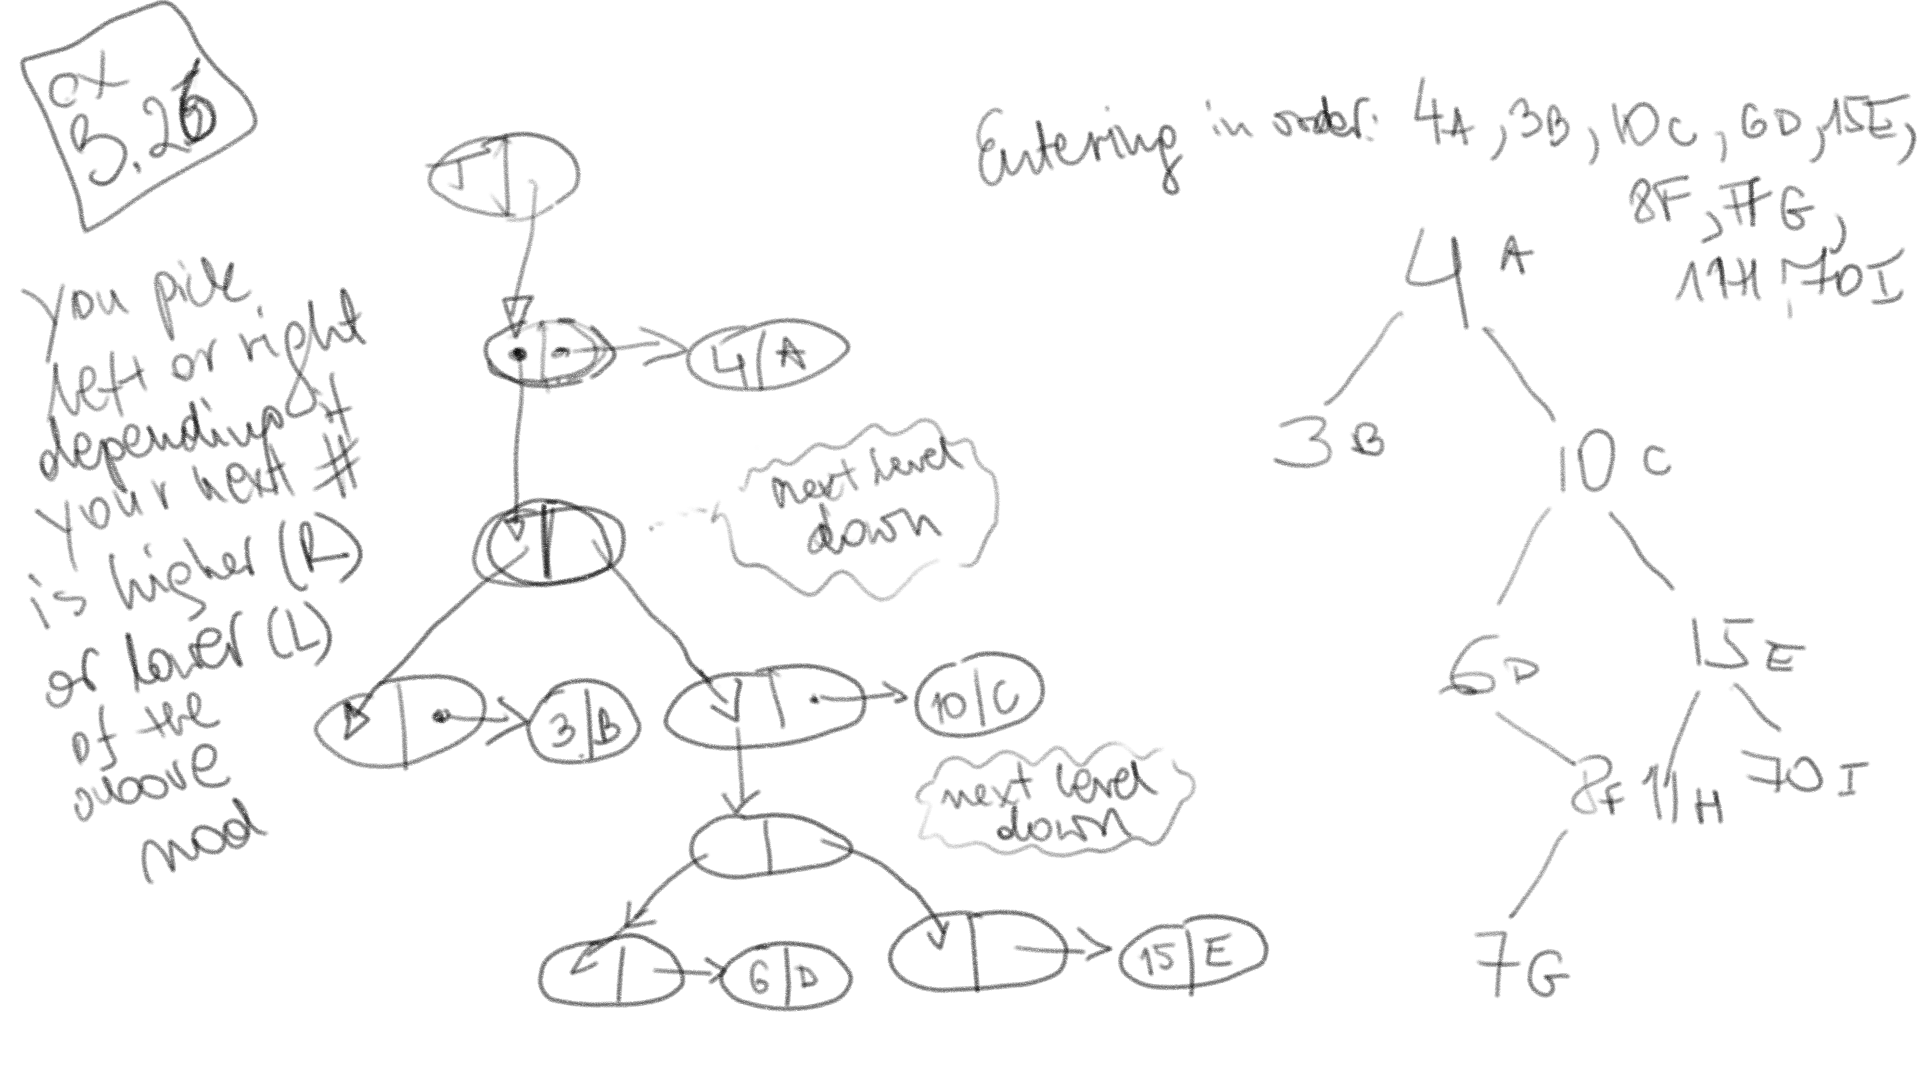 ex
3.26
you pick
left or right
depending if
your next #
is higher (R)
or lower (L)
of the
above
nod
T
4 A
next level
down
3 B
10 C
next level
down
6 D
15 E
Entering in order: 4A, 3B, 10C, 6D, 15E,
8F, 7G,
11H, 70I
4 A
3 B
10 C
6 D
15 E
8F
11 H
70 I
7 G